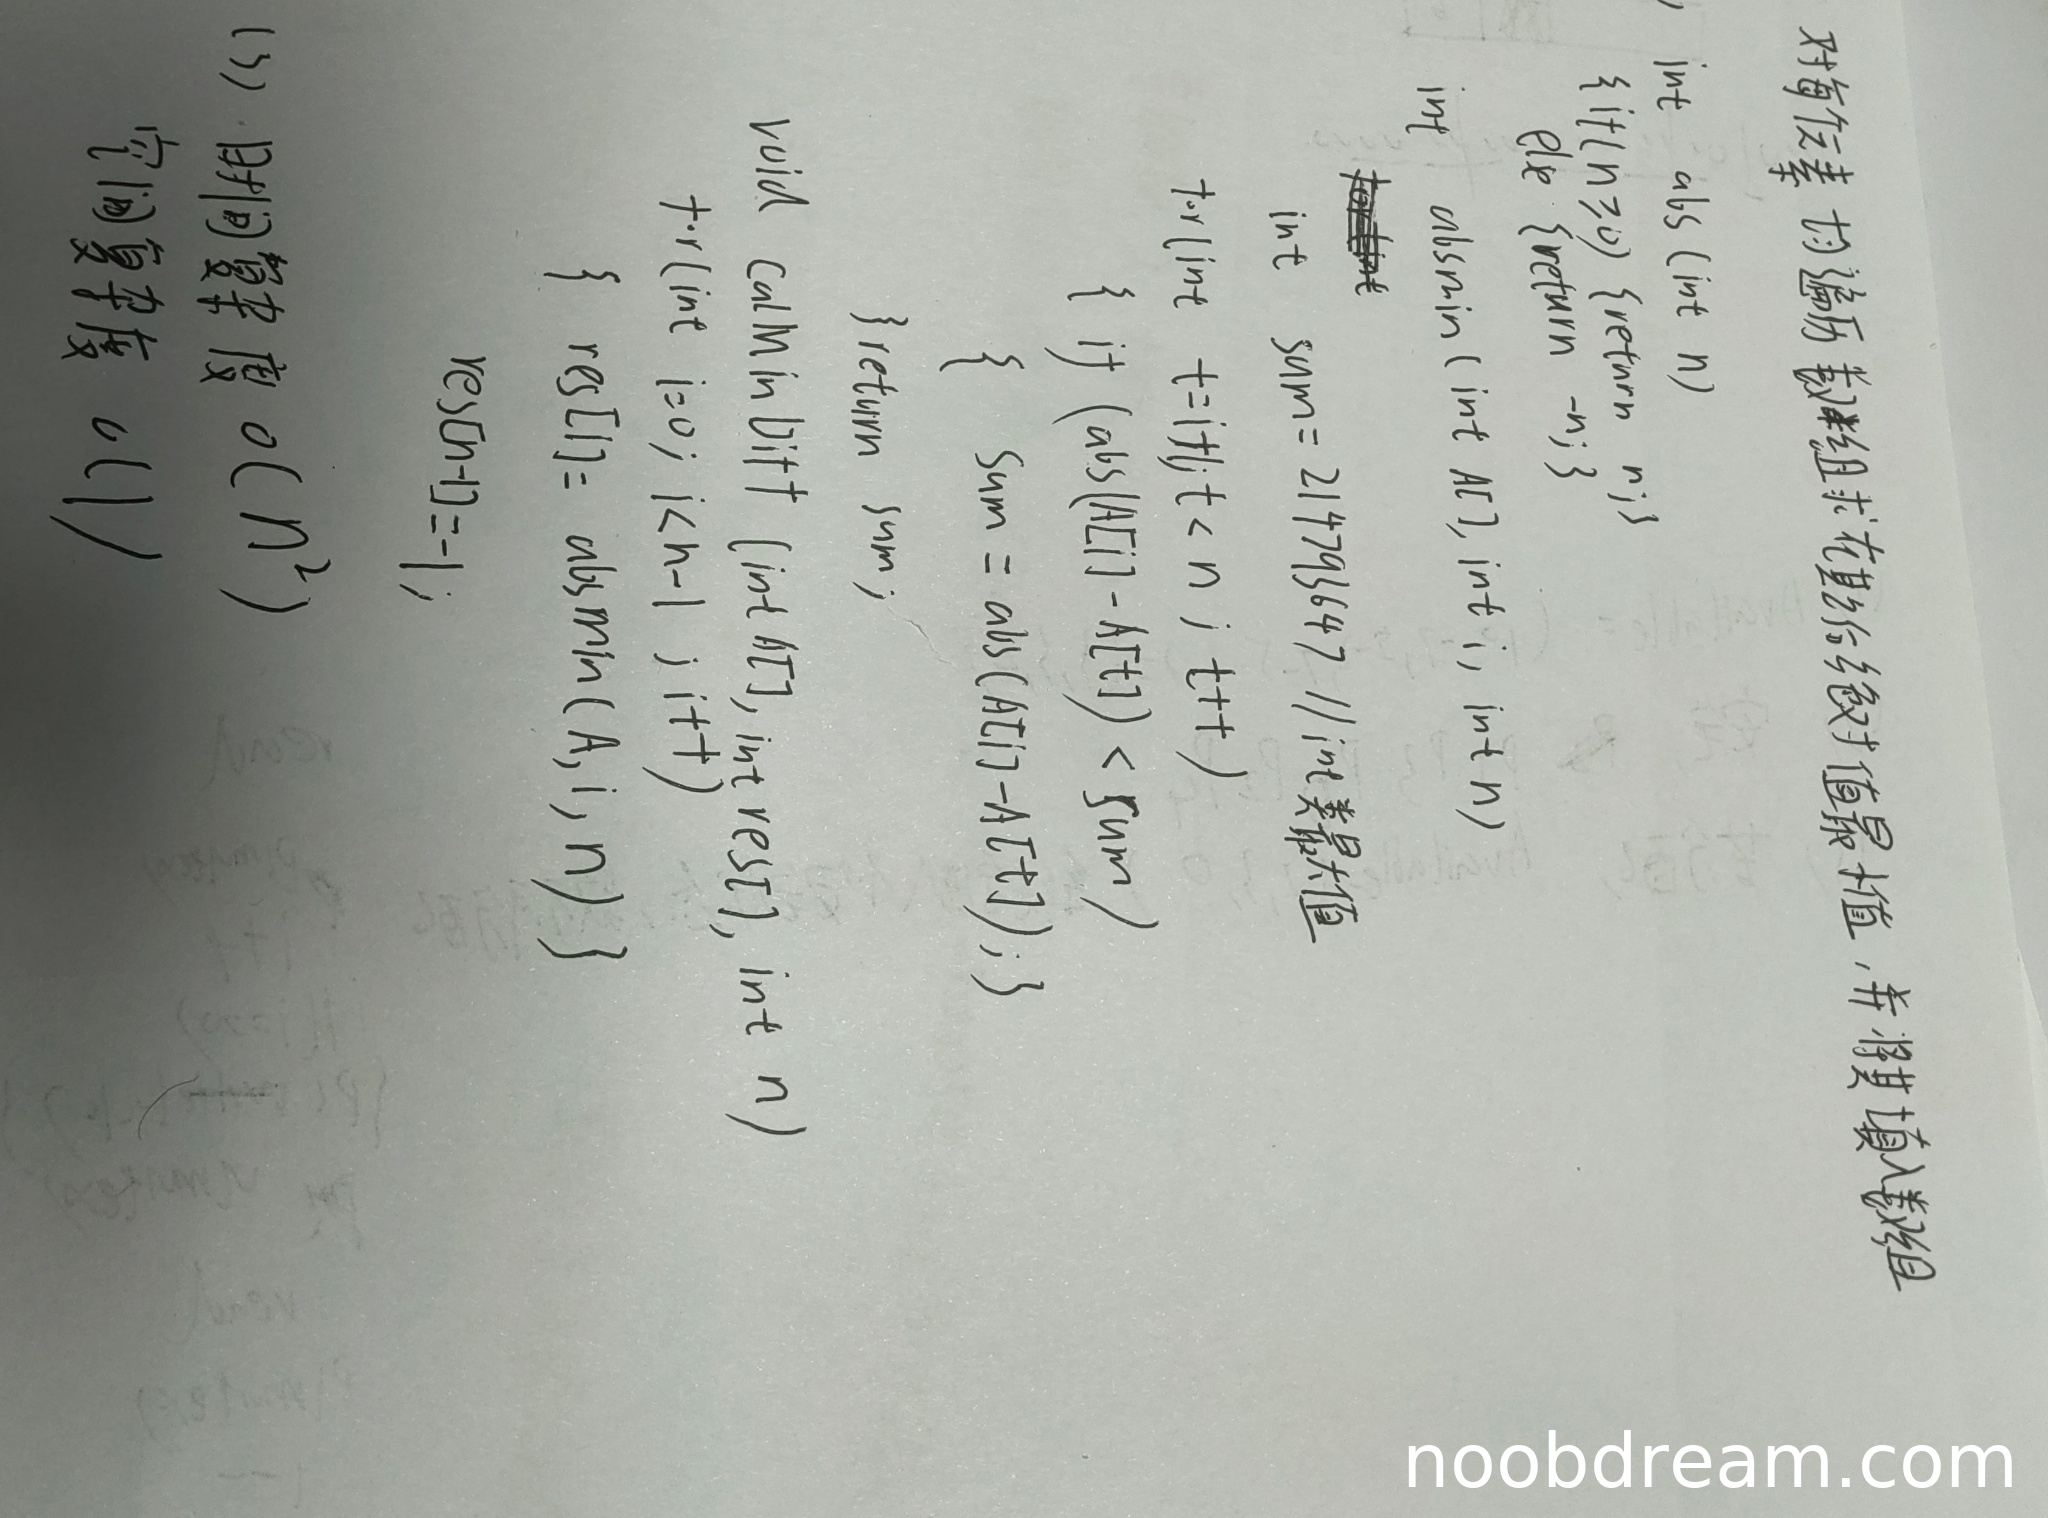 对每个元素均遍历数组求在其后绝对值最小值，并将其填入数组
int abs(int n)
{if(n≥0) {return n;}
else {return -n;}
int absmin(int A[], int i, int n)
int sum = 2147483647 //int类最大值
for(int t=i+1;t<n;t++)
{ if (abs(A[i]-A[t])<sum)
{ sum = abs(A[i]-A[t]);}
}return sum;
void CalMinDiff (int A[], int res[], int n)
for(int i=0;i<n-1;i++)
{ res[i]= absmin(A,i,n) }
res[n-1]=-1;
(3). 时间复杂度 O(n²)
空间复杂度 O(1)
noobdream.com